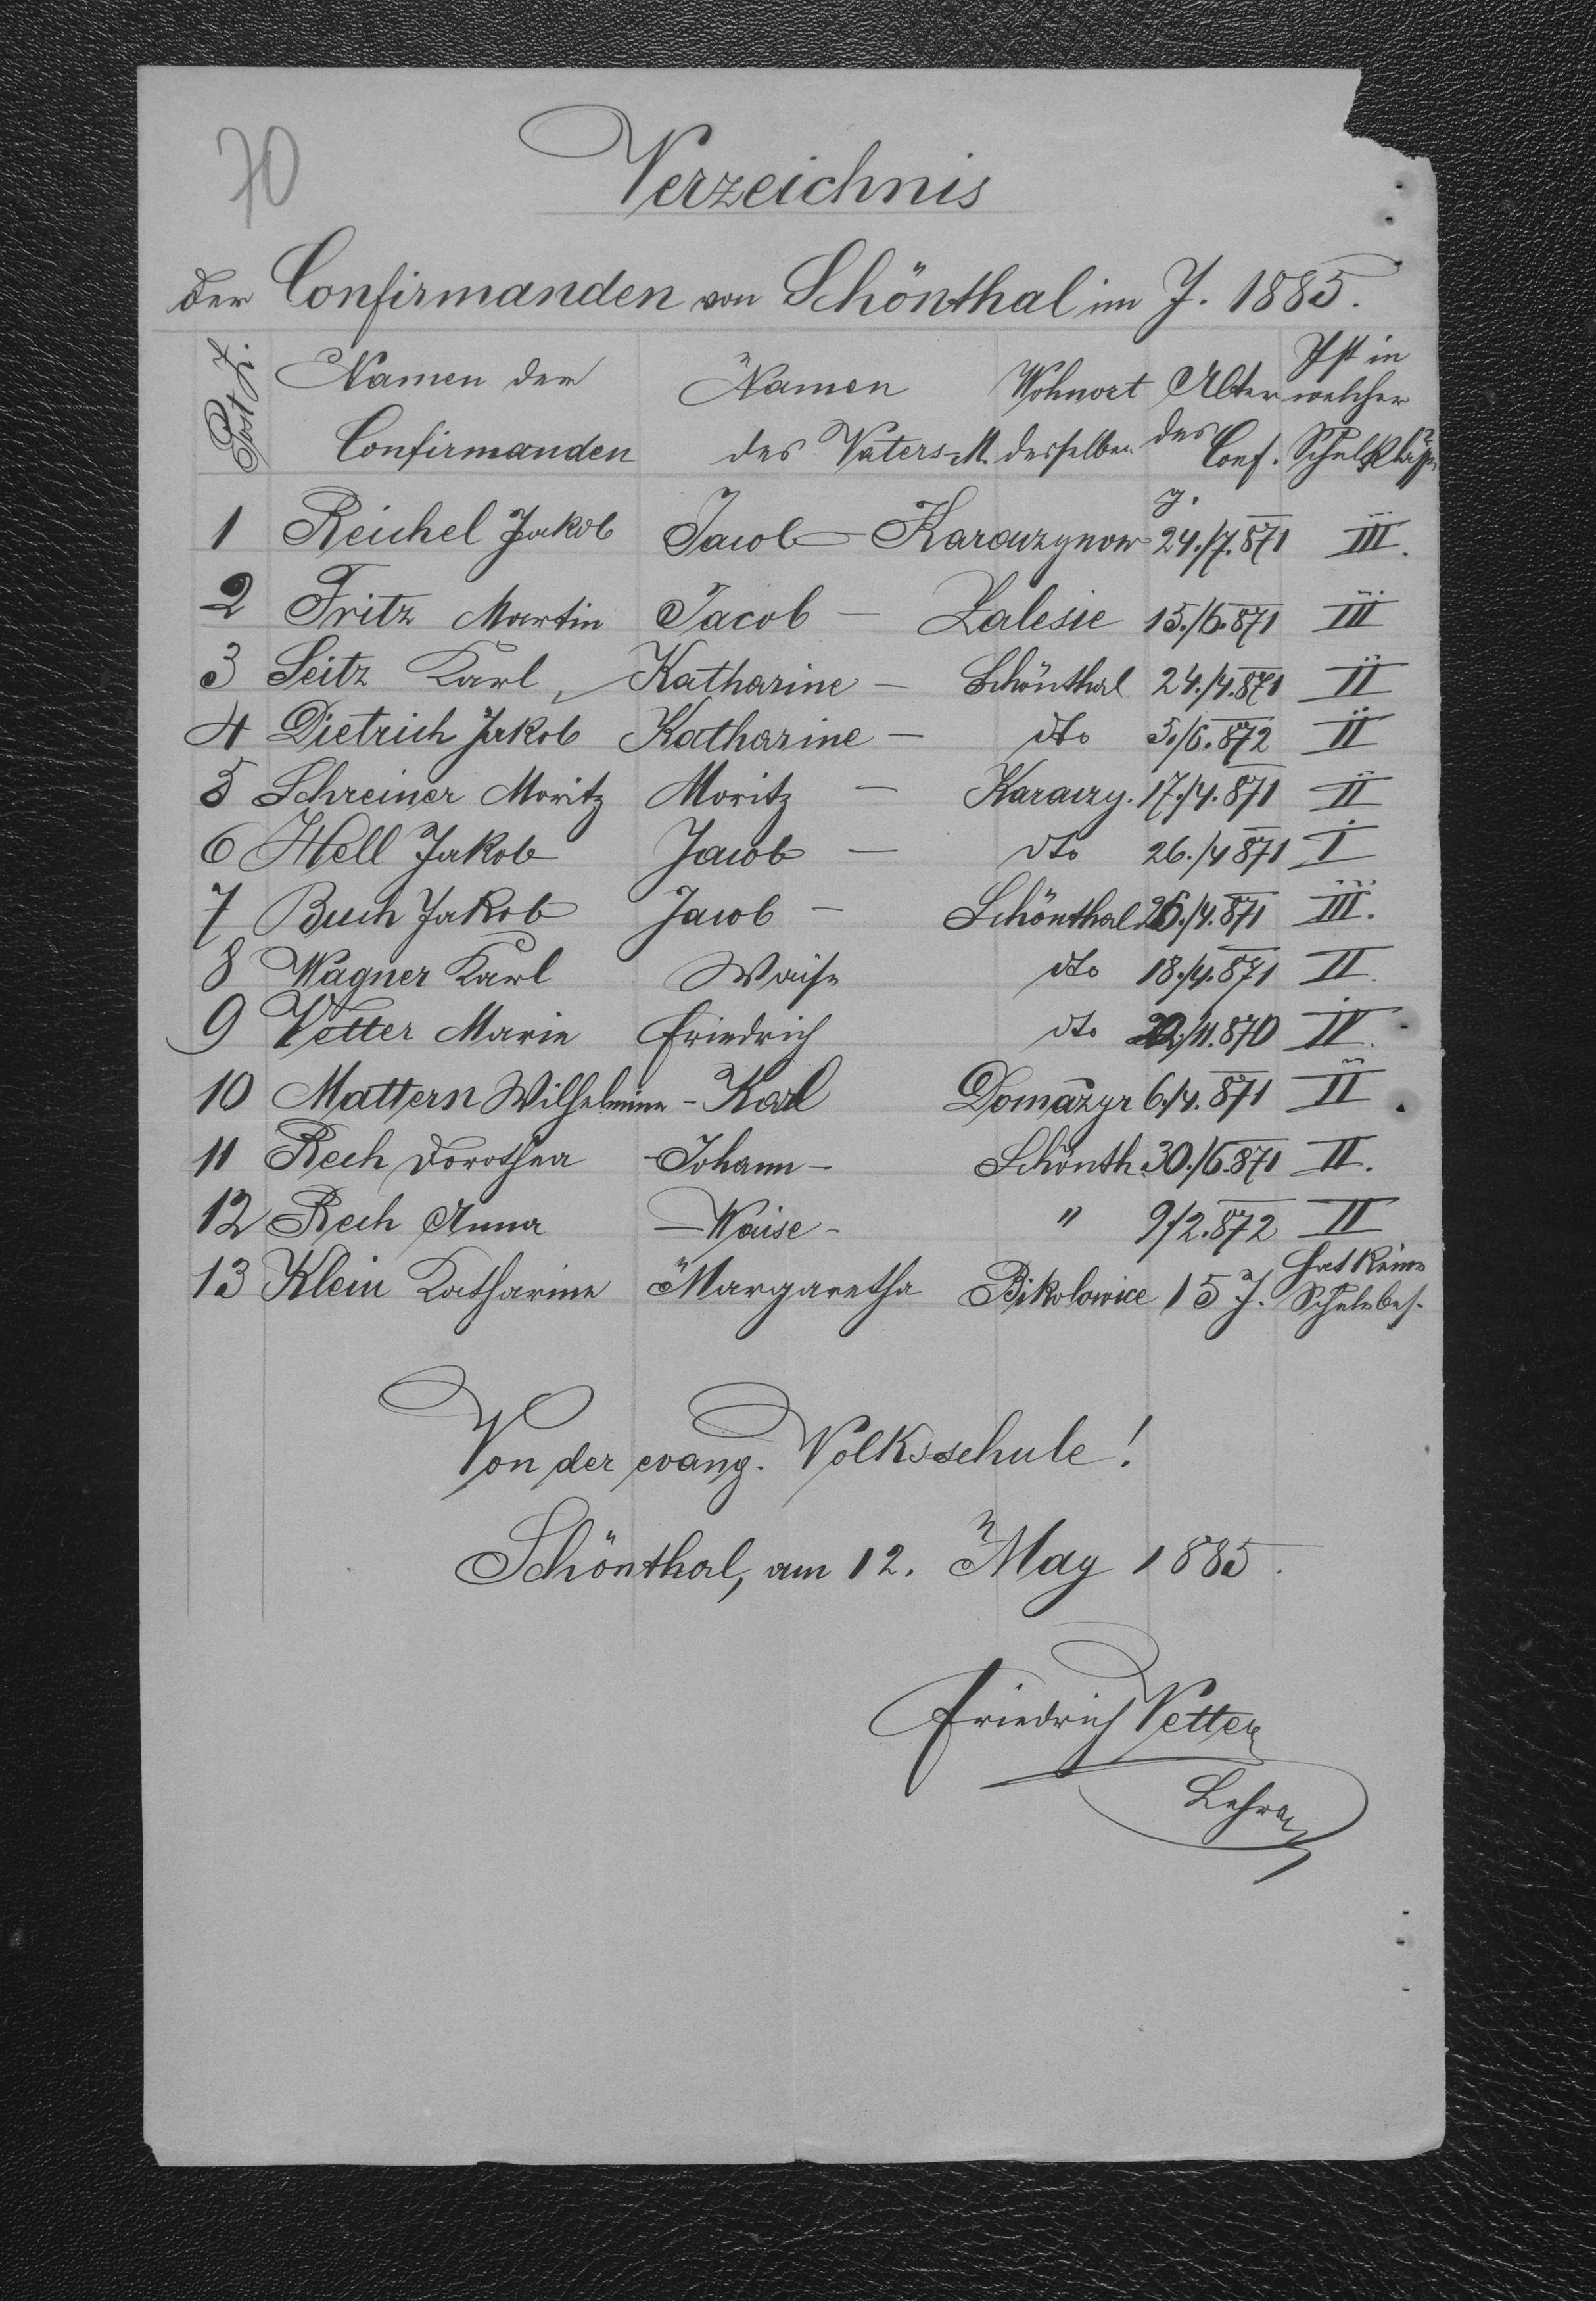 70
Verzeichnis
der Confirmanden von Schönthal im J. 1885.
Post Z. Namen der Confirmanden Namen des Vaters-M. Wohnort desselben Alter des Conf. Ist in welcher Schulklasse
J.
1 Reichel Jakob Jacob — Karaczynow 24./7. 871 III.
2 Fritz Martin Jacob — Zalesie 15./6. 871 III
3 Seitz Karl, Katharine — Schönthal 24./4. 871 II
4 Dietrich Jakob Katharine — dto 5./6. 872 II
5 Schreiner Moritz Moritz — Karaczy. 17./4. 871 II
6 Hell Jakob Jacob — dto 26./4 871 I
7 Buch Jakob Jacob — Schönthal 26./4. 871 III.
8 Wagner Karl Waise dto 18./4. 871 II.
9 Vetter Marie Friedrich dto 22./11. 870 IV.
10 Mattern Wilhelmine - Karl Domażyr 6./4. 871 II
11 Rech Dorothea - Johann - Schönth. 30./6. 871 II.
12 Rech Anna — Waise - " 9/2. 872 II
13 Klein Katharine Margaretha Bikolowice 15 J. hat keine Schule bes.
Von der evang. Volksschule!
Schönthal, am 12. May 1885.
Friedrich Vetter
Lehrer